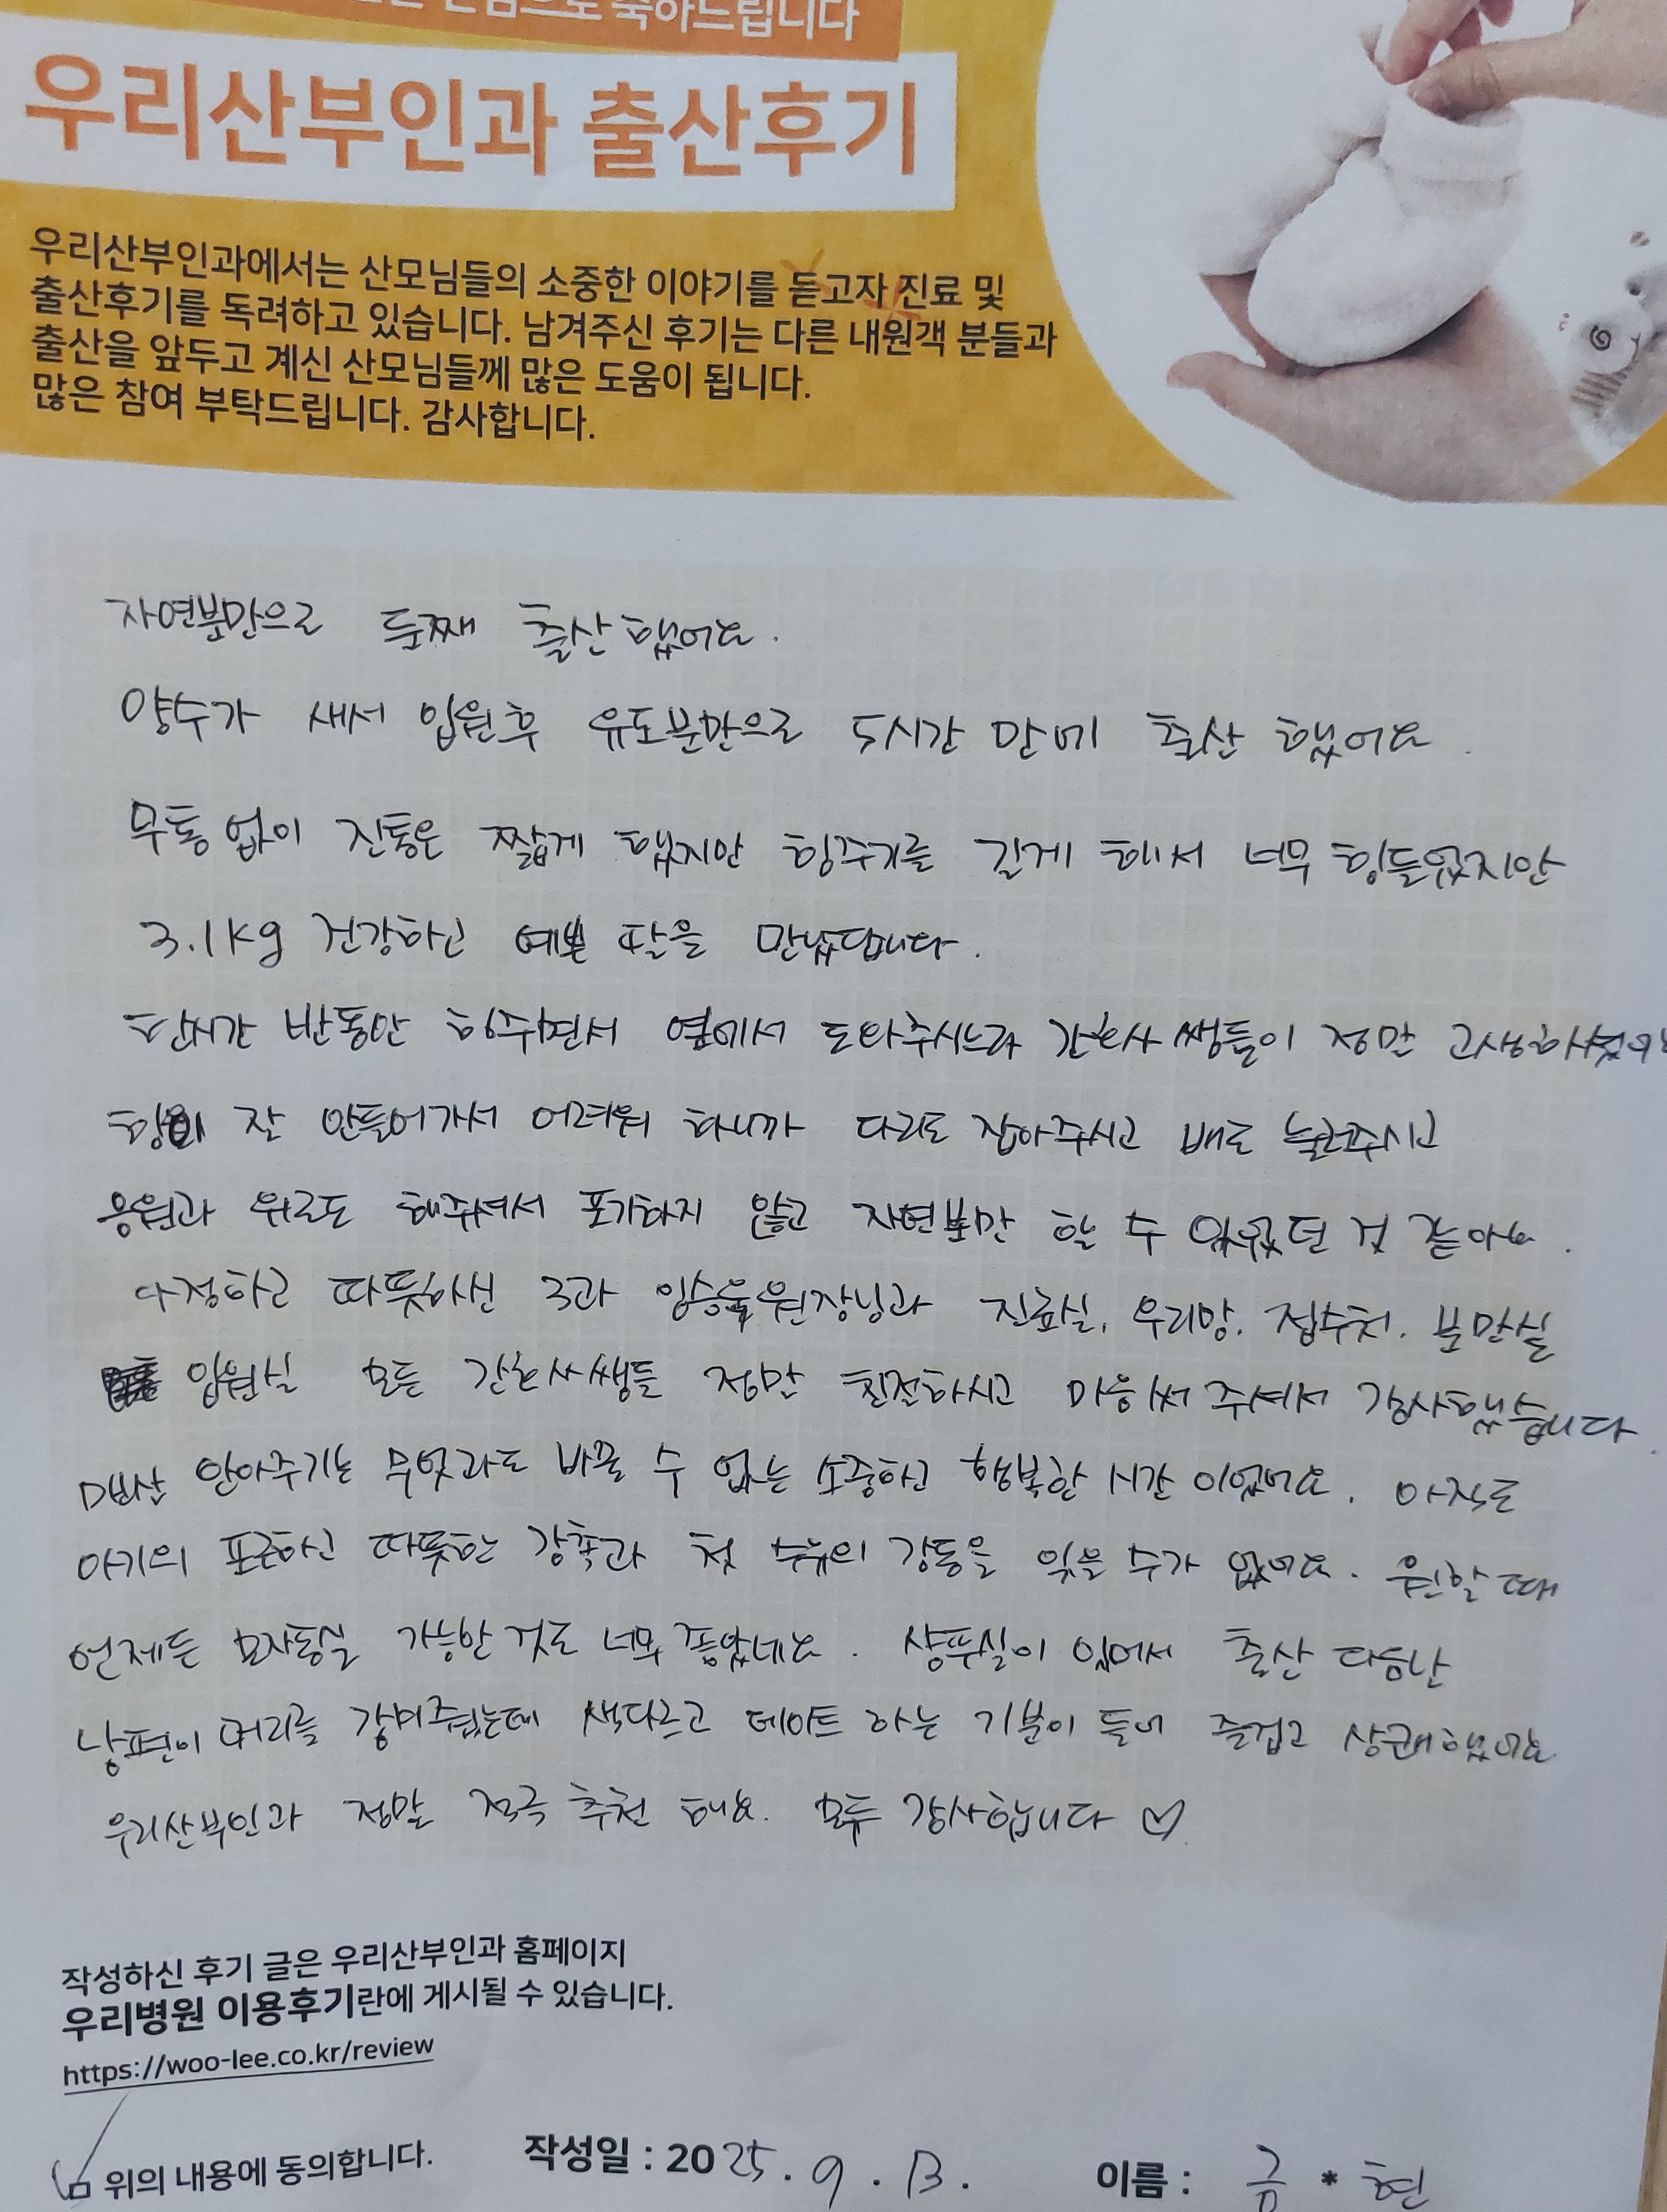 으로 축하드립니다
우리산부인과 출산후기
우리산부인과에서는 산모님들의 소중한 이야기를 듣고자 진료 및
출산후기를 독려하고 있습니다. 남겨주신 후기는 다른 내원객 분들과
출산을 앞두고 계신 산모님들께 많은 도움이 됩니다.
많은 참여 부탁드립니다. 감사합니다.
자연분만으로 둘째 출산했어요.
양수가 새서 입원후 유도분만으로 5시간 만에 출산 했어요.
무통없이 진통은 짧게 했지만 힘주기를 길게 해서 너무 힘들었지만
3.1kg 건강하고 예쁜 딸을 만났답니다.
한시간 반동안 힘주면서 옆에서 도와주시느라 간호사 쌤들이 정말 고생하셨어요
힘이 잘 안들어가서 어려워 하니까 다리도 잡아주시고 배도 눌러주시고
응원과 위로도 해주셔서 포기하지 않고 자연분만 할 수 있었던 것 같아요.
다정하고 따뜻하신 3과 원장님과 진료실, 우리맘, 접수처, 분만실
입원실 모든 간호사쌤들 정말 친절하시고 마음써 주셔서 감사했습니다.
안아주기는 무엇과도 바꿀 수 없는 소중하고 행복한 시간이었어요. 아직도
아기의 포근하고 따뜻한 감촉과 첫 수유의 감동을 잊을 수가 없어요. 원할 때
언제든 모자동실 가능한 것도 너무 좋았네요. 샴푸실이 있어서 출산 다음날
남편이 머리를 감겨줬는데 색다르고 데이트 하는 기분이 들어 즐겁고 상쾌했어요
우리산부인과 정말 적극 추천 해요. 모두 감사합니다 ♡
작성하신 후기 글은 우리산부인과 홈페이지
우리병원 이용후기란에 게시될 수 있습니다.
https://woo-lee.co.kr/review
위의 내용에 동의합니다. 작성일 : 2025. 9. 13. 이름 : 금 * 현